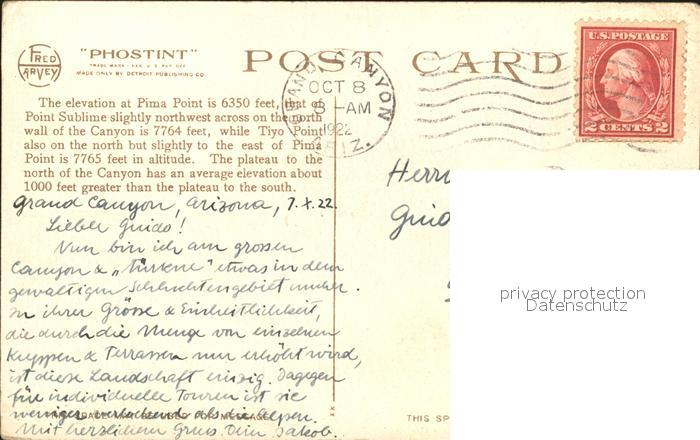 FRED HARVEY
"PHOSTINT"
TRADE MARK - REG. U.S. PAT. OFF.
MADE ONLY BY DETROIT PUBLISHING CO.
POST CARD
GRAND CANYON
OCT 8
8 -AM
1922
ARIZ.
U.S. POSTAGE
2 CENTS 2
The elevation at Pima Point is 6350 feet, that of
Point Sublime slightly northwest across on the north
wall of the Canyon is 7764 feet, while Tiyo Point
also on the north but slightly to the east of Pima
Point is 7765 feet in altitude. The plateau to the
north of the Canyon has an average elevation about
1000 feet greater than the plateau to the south.
Grand Canyon, Arizona, 7.X.22.
Lieber Guido!
Nun bin ich am grossen
Canyon & „türkne" etwas in dem
gewaltigen Schluchtengebiet umher.
In ihrer Grösse & Einheitlichkeit,
die durch die Menge von einzelnen
Kuppen & Terrassen nur erhöht wird,
ist diese Landschaft einzig. Dagegen
für individuelle Touren ist sie
weniger verlockend als die Alpen.
Mit herzlichem Gruss Dein Jakob.
Herrn
Guid
privacy protection
Datenschutz
THIS SP